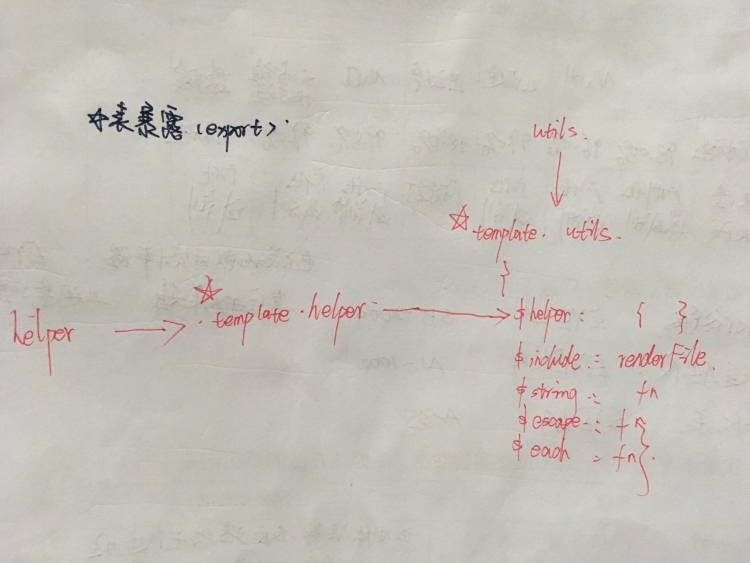 ☆表暴露(export)
utils.
☆ template. utils.
{
helper → ☆ template.helper → $helper: { }
$include: renderFile.
$string: fn
$escape: fn
$each: fn
}